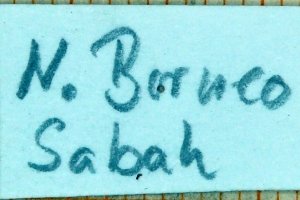 N. Borneo
Sabah